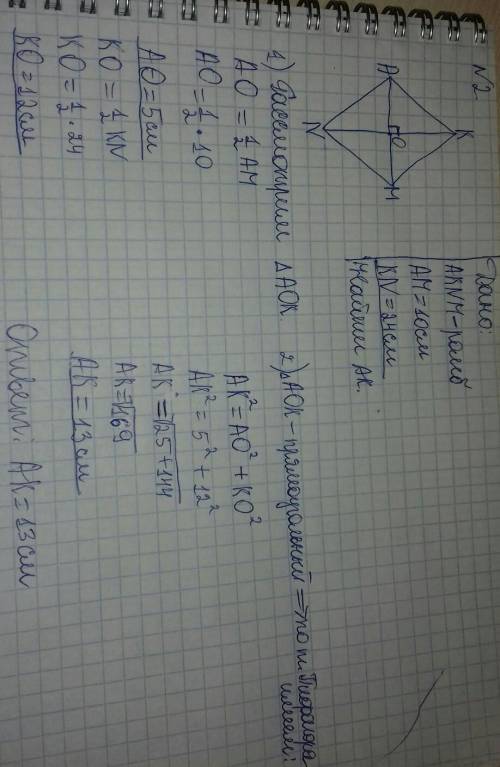 N2
A
N
O
K
M
Дано:
AKNM-ромб
AM=10см
KN=24см
Найти AK.
1) Рассмотрим ΔAOK.
AO=½AM
AO=½·10
AO=5см
KO=½KN
KO=½·24
KO=12см
2) ΔAOK-прямоугольный => по т. Пифагора
имеем:
AK²=AO²+KO²
AK²=5²+12²
AK=√25+144
AK=√169
AK=13см
Ответ: AK=13см